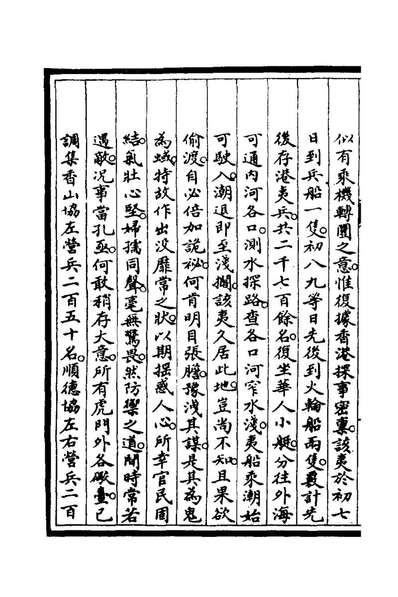 似有乘機轉圜之意惟復據香港探事密稟該夷於初七
日到兵船一隻初八九等日先後到火輪船兩隻覈計先
後存港夷兵共二千七百餘名復坐華人小艇分往外海
可通內河各口測水探路查各口河窄水淺夷船乘潮始
可駛入潮退即至淺擱該夷久居此地豈尚不知且果欲
偷渡自必倍加詭祕何肯明目張膽豫洩其謀是其為鬼
為蜮特故作出沒靡常之狀以期搖惑人心所幸官民固
結氣壯心堅婦孺同聲毫無驚畏然防禦之道閒時常若
遇敵況事當孔亟何敢稍存大意所有虎門外各礮臺已
調集香山協左營兵二百五十名順德協左右營兵二百